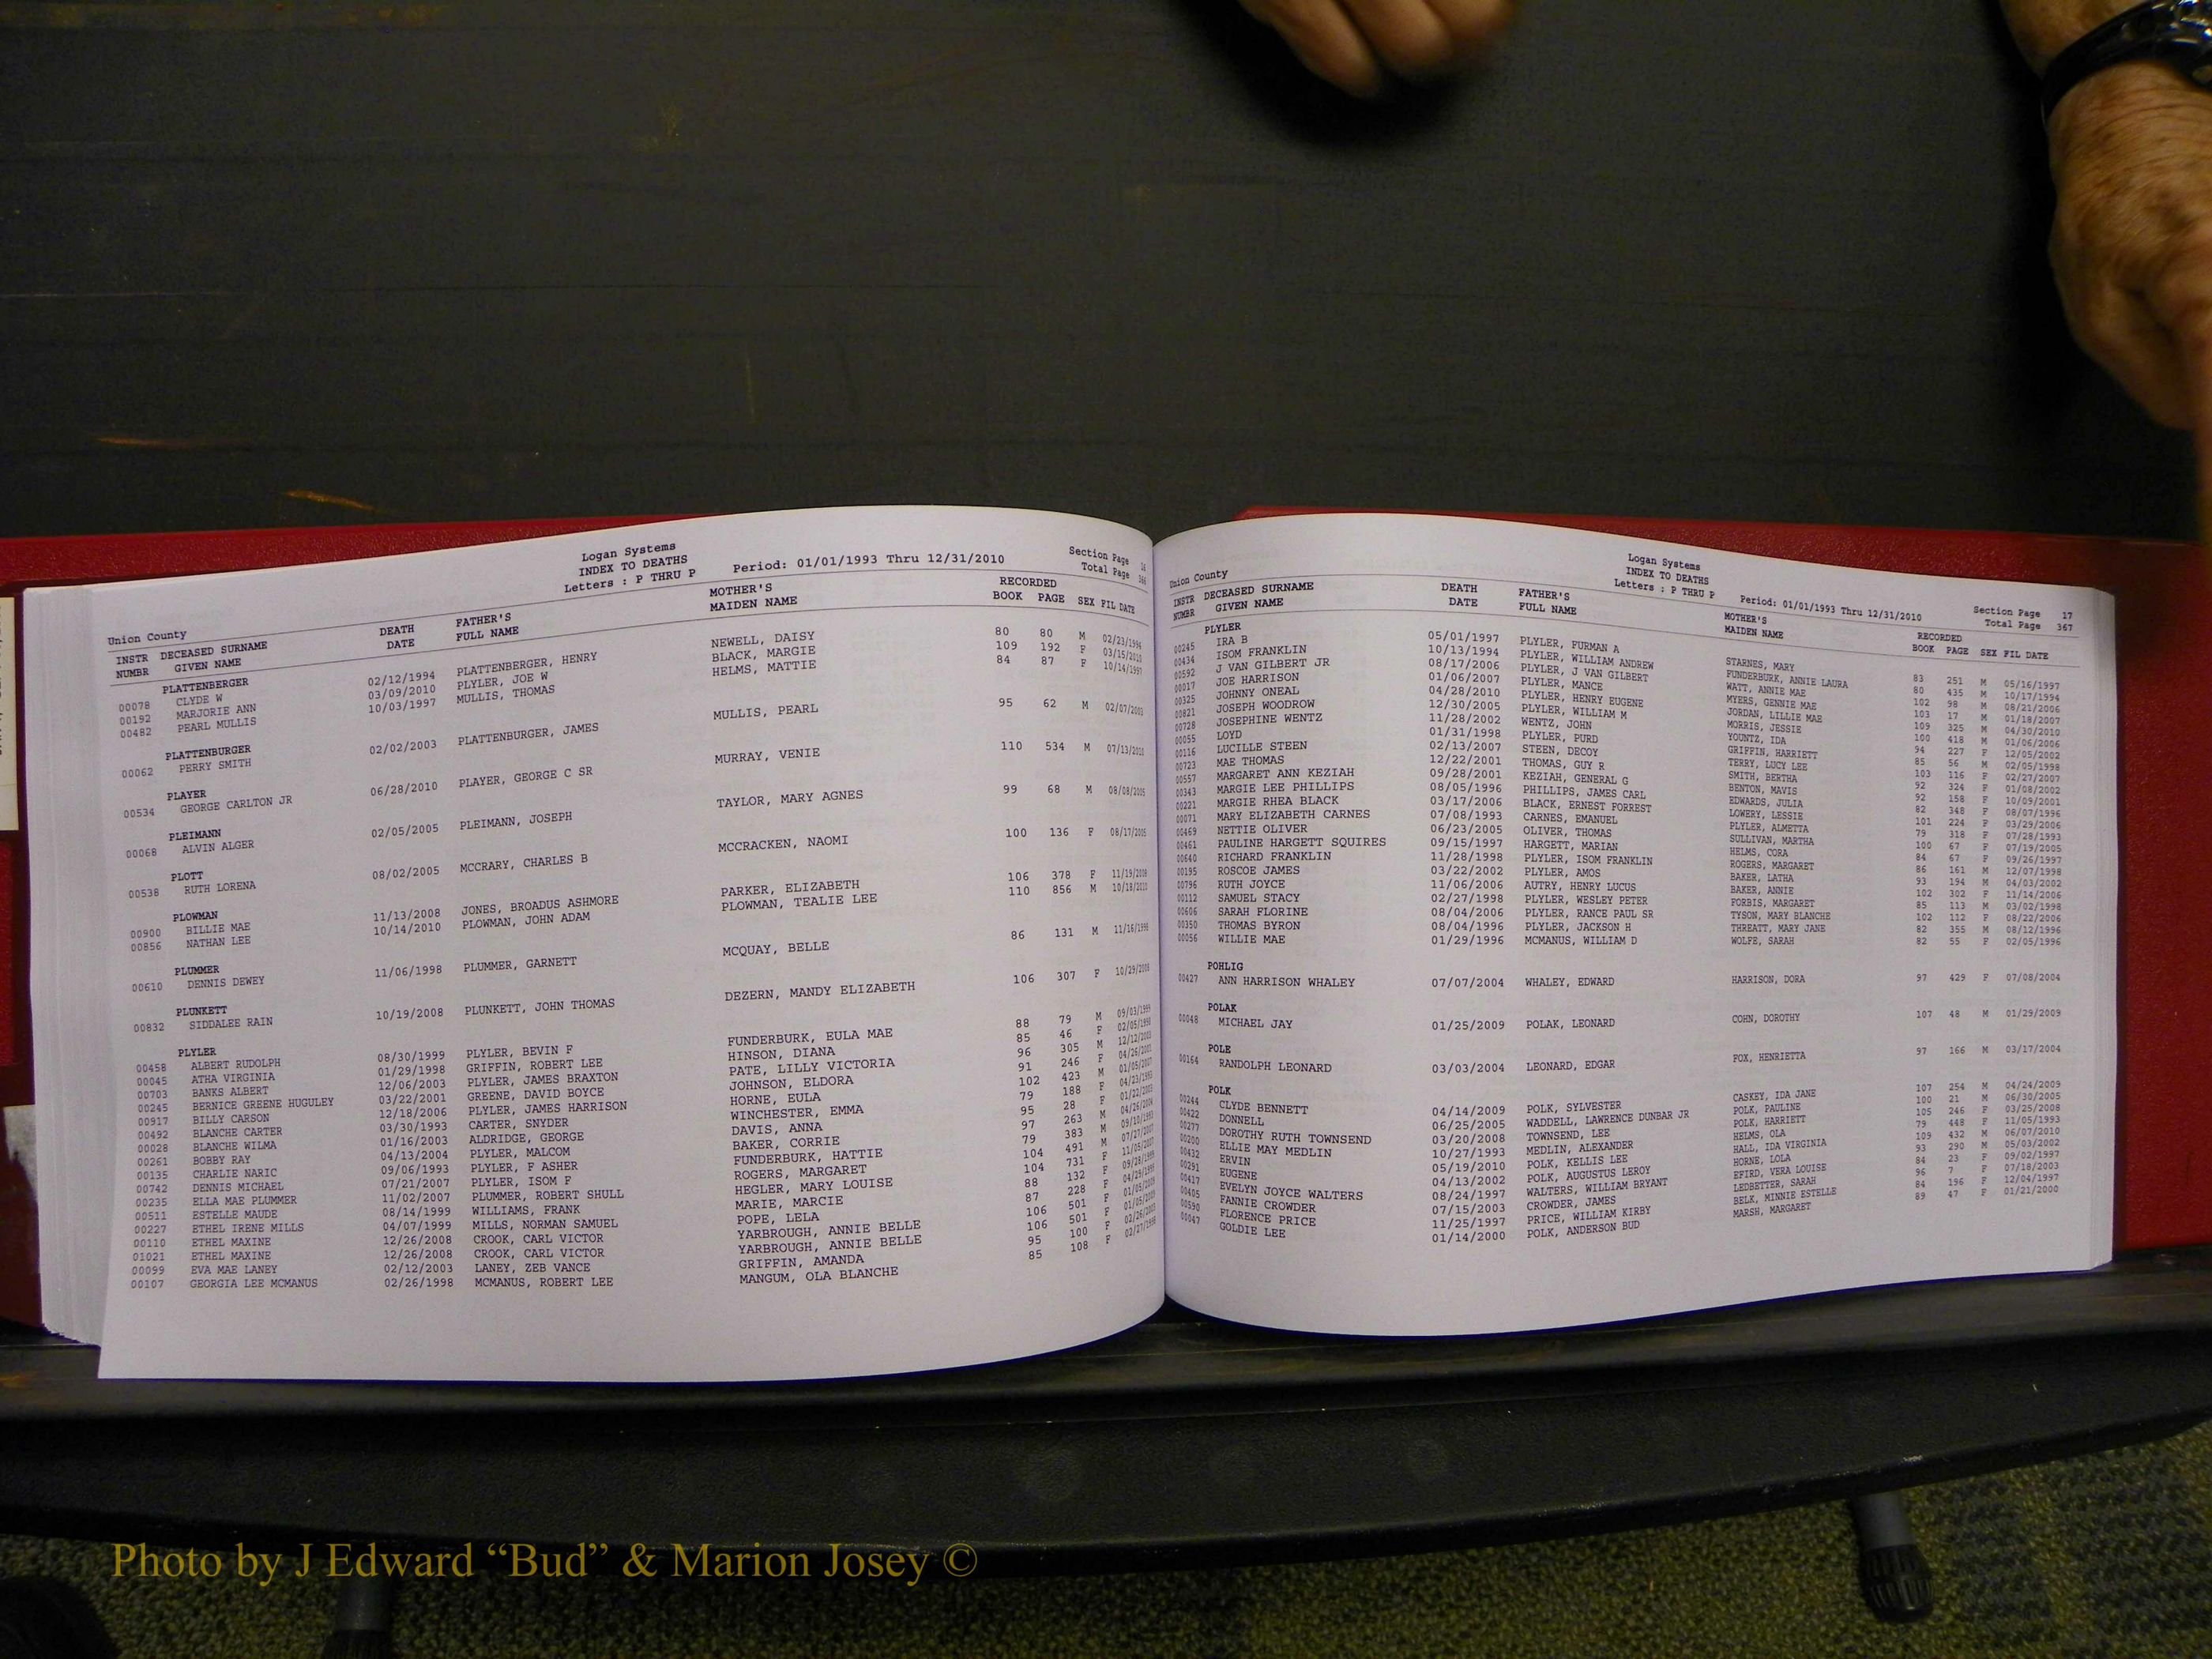 Logan Systems
INDEX TO DEATHS
Letters : P THRU P Period: 01/01/1993 Thru 12/31/2010
Section Page 16
Total Page 366
Union County
INSTR NUMBR DECEASED SURNAME GIVEN NAME DEATH DATE FATHER'S FULL NAME MOTHER'S MAIDEN NAME RECORDED BOOK PAGE SEX FIL DATE
PLATTENBERGER
00078 CLYDE W 02/12/1994 PLATTENBERGER, HENRY NEWELL, DAISY 80 80 M 02/23/1994
00192 MARJORIE ANN 03/09/2010 PLYLER, JOE W BLACK, MARGIE 109 192 F 03/15/2010
00482 PEARL MULLIS 10/03/1997 MULLIS, THOMAS HELMS, MATTIE 84 87 F 10/14/1997
PLATTENBURGER
00062 PERRY SMITH 02/02/2003 PLATTENBURGER, JAMES MULLIS, PEARL 95 62 M 02/07/2003
PLAYER
00534 GEORGE CARLTON JR 06/28/2010 PLAYER, GEORGE C SR MURRAY, VENIE 110 534 M 07/13/2010
PLEIMANN
00068 ALVIN ALGER 02/05/2005 PLEIMANN, JOSEPH TAYLOR, MARY AGNES 99 68 M 08/08/2005
PLOTT
00538 RUTH LORENA 08/02/2005 MCCRARY, CHARLES B MCCRACKEN, NAOMI 100 136 F 08/17/2005
PLOWMAN
00900 BILLIE MAE 11/13/2008 JONES, BROADUS ASHMORE PARKER, ELIZABETH 106 378 F 11/19/2008
00856 NATHAN LEE 10/14/2010 PLOWMAN, JOHN ADAM PLOWMAN, TEALIE LEE 110 856 M 10/18/2010
PLUMMER
00610 DENNIS DEWEY 11/06/1998 PLUMMER, GARNETT MCQUAY, BELLE 86 131 M 11/16/1998
PLUNKETT
00832 SIDDALEE RAIN 10/19/2008 PLUNKETT, JOHN THOMAS DEZERN, MANDY ELIZABETH 106 307 F 10/29/2008
PLYLER
00458 ALBERT RUDOLPH 08/30/1999 PLYLER, BEVIN F FUNDERBURK, EULA MAE 88 79 M 09/03/1999
00045 ATHA VIRGINIA 01/29/1998 GRIFFIN, ROBERT LEE HINSON, DIANA 85 46 F 02/05/1998
00703 BANKS ALBERT 12/06/2003 PLYLER, JAMES BRAXTON PATE, LILLY VICTORIA 96 305 M 12/12/2003
00245 BERNICE GREENE HUGULEY 03/22/2001 GREENE, DAVID BOYCE JOHNSON, ELDORA 91 246 F 04/26/2001
00917 BILLY CARSON 12/18/2006 PLYLER, JAMES HARRISON HORNE, EULA 102 423 M 01/05/2007
00492 BLANCHE CARTER 03/30/1993 CARTER, SNYDER WINCHESTER, EMMA 79 188 F 04/23/1993
00028 BLANCHE WILMA 01/16/2003 ALDRIDGE, GEORGE DAVIS, ANNA 95 28 F 01/22/2003
00261 BOBBY RAY 04/13/2004 PLYLER, MALCOM BAKER, CORRIE 97 263 M 04/26/2004
00135 CHARLIE NARIC 09/06/1993 PLYLER, F ASHER FUNDERBURK, HATTIE 79 383 M 09/10/1993
00742 DENNIS MICHAEL 07/21/2007 PLYLER, ISOM F ROGERS, MARGARET 104 491 M 07/27/2007
00235 ELLA MAE PLUMMER 11/02/2007 PLUMMER, ROBERT SHULL HEGLER, MARY LOUISE 104 731 F 11/05/2007
00511 ESTELLE MAUDE 08/14/1999 WILLIAMS, FRANK MARIE, MARCIE 88 132 F 09/28/1999
00227 ETHEL IRENE MILLS 04/07/1999 MILLS, NORMAN SAMUEL POPE, LELA 87 228 F 04/29/1999
00110 ETHEL MAXINE 12/26/2008 CROOK, CARL VICTOR YARBROUGH, ANNIE BELLE 106 501 F 01/05/2009
01021 ETHEL MAXINE 12/26/2008 CROOK, CARL VICTOR YARBROUGH, ANNIE BELLE 106 501 F 01/05/2009
00099 EVA MAE LANEY 02/12/2003 LANEY, ZEB VANCE GRIFFIN, AMANDA 95 100 F 02/26/2003
00107 GEORGIA LEE MCMANUS 02/26/1998 MCMANUS, ROBERT LEE MANGUM, OLA BLANCHE 85 108 F 02/27/1998
Logan Systems
INDEX TO DEATHS
Letters : P THRU P Period: 01/01/1993 Thru 12/31/2010
Section Page 17
Total Page 367
Union County
INSTR NUMBR DECEASED SURNAME GIVEN NAME DEATH DATE FATHER'S FULL NAME MOTHER'S MAIDEN NAME RECORDED BOOK PAGE SEX FIL DATE
PLYLER
00245 IRA B 05/01/1997 PLYLER, FURMAN A STARNES, MARY 83 251 M 05/16/1997
00434 ISOM FRANKLIN 10/13/1994 PLYLER, WILLIAM ANDREW FUNDERBURK, ANNIE LAURA 80 435 M 10/17/1994
00592 J VAN GILBERT JR 08/17/2006 PLYLER, J VAN GILBERT WATT, ANNIE MAE 102 98 M 08/21/2006
00017 JOE HARRISON 01/06/2007 PLYLER, MANCE MYERS, GENNIE MAE 103 17 M 01/18/2007
00325 JOHNNY ONEAL 04/28/2010 PLYLER, HENRY EUGENE JORDAN, LILLIE MAE 109 325 M 04/30/2010
00821 JOSEPH WOODROW 12/30/2005 PLYLER, WILLIAM M MORRIS, JESSIE 100 418 M 01/06/2006
00728 JOSEPHINE WENTZ 11/28/2002 WENTZ, JOHN YOUNTZ, IDA 94 227 F 12/05/2002
00055 LOYD 01/31/1998 PLYLER, PURD GRIFFIN, HARRIETT 85 56 M 02/05/1998
00116 LUCILLE STEEN 02/13/2007 STEEN, DECOY TERRY, LUCY LEE 103 116 F 02/27/2007
00723 MAE THOMAS 12/22/2001 THOMAS, GUY R SMITH, BERTHA 92 324 F 01/08/2002
00557 MARGARET ANN KEZIAH 09/28/2001 KEZIAH, GENERAL G BENTON, MAVIS 92 158 F 10/09/2001
00343 MARGIE LEE PHILLIPS 08/05/1996 PHILLIPS, JAMES CARL EDWARDS, JULIA 82 348 F 08/07/1996
00221 MARGIE RHEA BLACK 03/17/2006 BLACK, ERNEST FORREST LOWERY, LESSIE 101 224 F 03/29/2006
00071 MARY ELIZABETH CARNES 07/08/1993 CARNES, EMANUEL PLYLER, ALMETTA 79 318 F 07/28/1993
00469 NETTIE OLIVER 06/23/2005 OLIVER, THOMAS SULLIVAN, MARTHA 100 67 F 07/19/2005
00461 PAULINE HARGETT SQUIRES 09/15/1997 HARGETT, MARIAN HELMS, CORA 84 67 F 09/26/1997
00640 RICHARD FRANKLIN 11/28/1998 PLYLER, ISOM FRANKLIN ROGERS, MARGARET 86 161 M 12/07/1998
00195 ROSCOE JAMES 03/22/2002 PLYLER, AMOS BAKER, LATHA 93 194 M 04/03/2002
00796 RUTH JOYCE 11/06/2006 AUTRY, HENRY LUCUS BAKER, ANNIE 102 302 F 11/14/2006
00112 SAMUEL STACY 02/27/1998 PLYLER, WESLEY PETER FORBIS, MARGARET 85 113 M 03/02/1998
00606 SARAH FLORINE 08/04/2006 PLYLER, RANCE PAUL SR TYSON, MARY BLANCHE 102 112 F 08/22/2006
00350 THOMAS BYRON 08/04/1996 PLYLER, JACKSON H THREATT, MARY JANE 82 355 M 08/12/1996
00056 WILLIE MAE 01/29/1996 MCMANUS, WILLIAM D WOLFE, SARAH 82 55 F 02/05/1996
POHLIG
00427 ANN HARRISON WHALEY 07/07/2004 WHALEY, EDWARD HARRISON, DORA 97 429 F 07/08/2004
POLAK
00048 MICHAEL JAY 01/25/2009 POLAK, LEONARD COHN, DOROTHY 107 48 M 01/29/2009
POLE
00164 RANDOLPH LEONARD 03/03/2004 LEONARD, EDGAR FOX, HENRIETTA 97 166 M 03/17/2004
POLK
00244 CLYDE BENNETT 04/14/2009 POLK, SYLVESTER CASKEY, IDA JANE 107 254 M 04/24/2009
00422 DONNELL 06/25/2005 WADDELL, LAWRENCE DUNBAR JR POLK, PAULINE 100 21 M 06/30/2005
00277 DOROTHY RUTH TOWNSEND 03/20/2008 TOWNSEND, LEE POLK, HARRIETT 105 246 F 03/25/2008
00200 ELLIE MAY MEDLIN 10/27/1993 MEDLIN, ALEXANDER HELMS, OLA 79 448 F 11/05/1993
00432 ERVIN 05/19/2010 POLK, KELLIS LEE HALL, IDA VIRGINIA 109 432 M 06/07/2010
00291 EUGENE 04/13/2002 POLK, AUGUSTUS LEROY HORNE, LOLA 93 290 M 05/03/2002
00417 EVELYN JOYCE WALTERS 08/24/1997 WALTERS, WILLIAM BRYANT EFIRD, VERA LOUISE 84 23 F 09/02/1997
00405 FANNIE CROWDER 07/15/2003 CROWDER, JAMES LEDBETTER, SARAH 96 7 F 07/18/2003
00590 FLORENCE PRICE 11/25/1997 PRICE, WILLIAM KIRBY BELK, MINNIE ESTELLE 84 196 F 12/04/1997
00047 GOLDIE LEE 01/14/2000 POLK, ANDERSON BUD MARSH, MARGARET 89 47 F 01/21/2000
Photo by J Edward “Bud” & Marion Josey ©